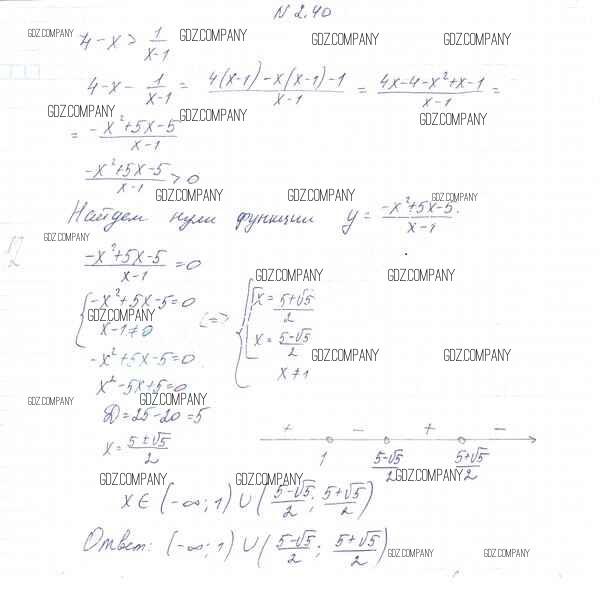 N 2.40
GDZ.COMPANY GDZ.COMPANY GDZ.COMPANY GDZ.COMPANY
4-x > 1/(x-1)
4-x - 1/(x-1) = (4(x-1)-x(x-1)-1)/(x-1) = (4x-4-x²+x-1)/(x-1) =
GDZ.COMPANY GDZ.COMPANY GDZ.COMPANY
= (-x²+5x-5)/(x-1)
(-x²+5x-5)/(x-1) > 0
GDZ.COMPANY GDZ.COMPANY GDZ.COMPANY
Найдем нули функции y = (-x²+5x-5)/(x-1).
GDZ.COMPANY
(-x²+5x-5)/(x-1) = 0
GDZ.COMPANY GDZ.COMPANY
{ -x²+5x-5=0 <=> { [ x = (5+√5)/2
GDZ.COMPANY
x-1≠0 x = (5-√5)/2
GDZ.COMPANY GDZ.COMPANY
-x²+5x-5=0 x≠1
x²-5x+5=0
GDZ.COMPANY GDZ.COMPANY
D=25-20=5
x = (5±√5)/2
+ - + -
1 (5-√5)/2 (5+√5)/2
GDZ.COMPANY GDZ.COMPANY GDZ.COMPANY
x∈(-∞;1)∪((5-√5)/2; (5+√5)/2)
Ответ: (-∞;1)∪((5-√5)/2; (5+√5)/2)
GDZ.COMPANY GDZ.COMPANY